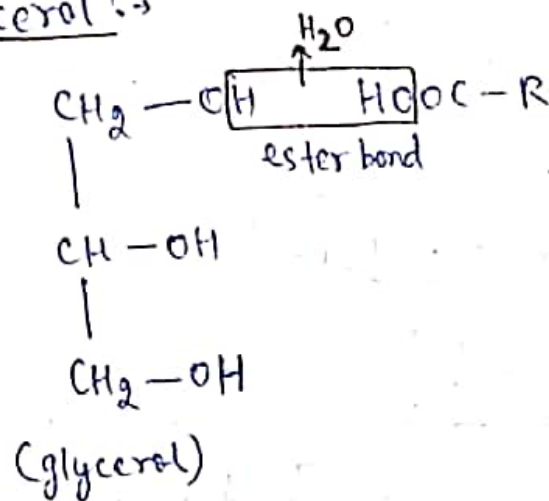 cerol :→
H₂O
CH₂ — OH HOOC – R
ester bond
CH – OH
CH₂ – OH
(glycerol)